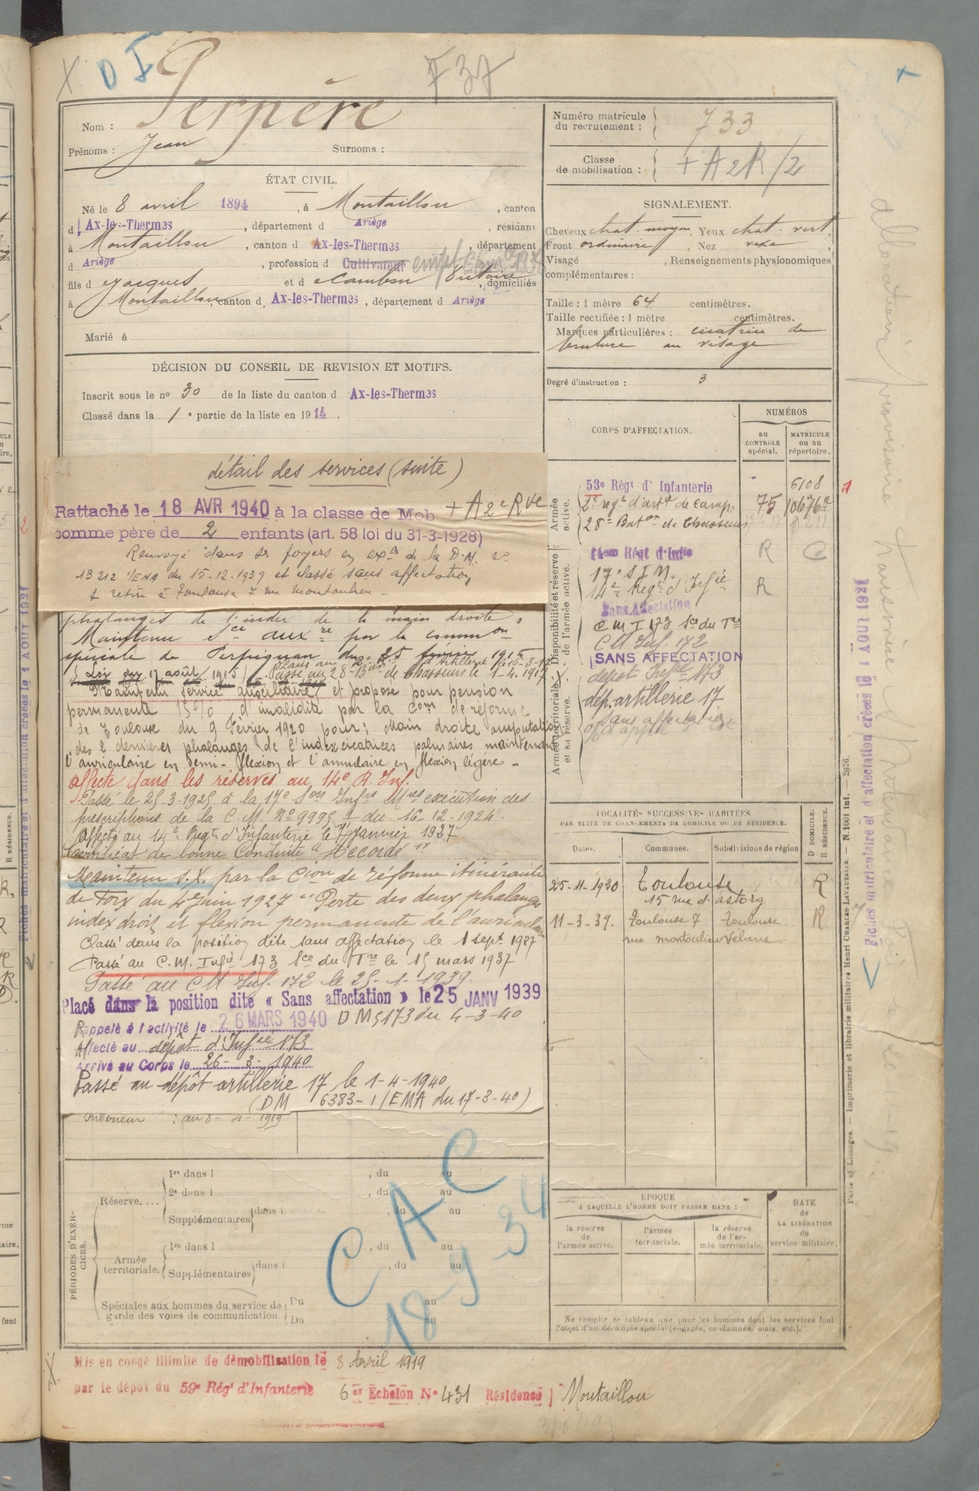 D I
F 37
Nom : Perpère
Prénoms : Jean Surnoms :
ÉTAT CIVIL.
Né le 8 avril 1894, à Montaillou, canton
d Ax-les-Thermes, département d Ariège, résidant
à Montaillou, canton d Ax-les-Thermes, département
d Ariège, profession d Cultivateur
fils d Jacques et d Cambon Victoire, domiciliés
à Montaillou canton d Ax-les-Thermes, département d Ariège
Marié à
DÉCISION DU CONSEIL DE REVISION ET MOTIFS.
Inscrit sous le n° 30 de la liste du canton d Ax-les-Thermes
Classé dans la 1e partie de la liste en 1914.
détail des services (suite)
Rattaché le 18 AVR 1940 à la classe de Mob + A 2e Rve
comme père de 2 enfants (art. 58 loi du 31-3-1928)
Renvoyé dans ses foyers en exon de la D.M. no
13212 1/EMA du 15-12-1939 et classé sans affectation
se retire à Toulouse 7 rue Montoulieu
phalanges de l'index de la main droite.
Maintenu Sce auxre par la common
spéciale de Perpignan du 25 1915
Loi du 17 août 1915
Passé au 28e Bon de Chasseurs le 1-4-1917
Maintenu service auxiliaire et proposé pour pension
permanente 15% d'invalidité par la Com de réforme
de Toulouse du 9 février 1920 pour : Main droite amputation
des 2 dernières phalanges de l'index cicatrices palmaires maintenant
l'auriculaire en demi-flexion et l'annulaire en flexion légère.
affecté dans les réserves au 14e R. Inf
Passé le 25-3-1925 à la 17e Son Infrs Mres exécution des
prescriptions de la C.M. No 9995 du 16-12-1924
affecté au 14e Régt d'Infanterie le 1er Janvier 1937
Certificat de bonne Conduite "Accordé"
Maintenu S.X. par la Cion de réforme itinérante
de Foix du 4 juin 1927 Perte des deux phalanges
index droit et flexion permanente de l'auriculaire
Classé dans la position dite sans affectation le 1 sept 1937
Passé au C.M. Infie 173 Sce du Tre le 15 mars 1937
Passé au CM Inf. 172 le 25-1-1939
Placé dans la position dite « Sans affectation » le 25 JANV 1939
Rappelé à l'activité le 26 MARS 1940 DM 5173 du 4-3-40
Affecté au dépôt d'Infie 173
Arrivé au Corps le 26-3-1940
Passé au dépôt artillerie 17 le 1-4-1940
(DM 6383-1/EMA du 17-3-40)
PÉRIODES D'EXERCICES.
Réserve.... 1re dans l , du au
2e dans l , du au
Supplémentaires dans l du au
Armée territoriale. 1re dans l , du au
Supplémentaires dans l , du au
Spéciales aux hommes du service de garde des voies de communication. Du au
Du au
CAC
18-9-34
Numéro matricule du recrutement : 733
Classe de mobilisation : + A 2 R/2
SIGNALEMENT.
Cheveux chat. moyen, Yeux chat. vert,
Front ordinaire, Nez
Visagé , Renseignements physionomiques
complémentaires :
Taille : 1 mètre 64 centimètres.
Taille rectifiée : 1 mètre centimètres.
Marques particulières : cicatrice de
brulure au visage
Degré d'instruction : 3
CORPS D'AFFECTATION.
NUMÉROS
AU CONTRÔLE spécial.
MATRICULE ou au répertoire.
Armée active.
53e Régt d'Infanterie 6108
2e régt d'arte de Camp. 75 10676a
28e Baton de Chasseurs
Disponibilité et réserve de l'armée active.
14ème Régt d'Infie R C
17e S I M
14e Régt d'Infie R
Sans Affectation
C M I 173 Sce du Tre
CM Inf. 172
SANS AFFECTATION
Armée territoriale et sa réserve.
dépôt Infie 173
dép. artillerie 17
Sans affectation
LOCALITÉS SUCCESSIVES HABITÉES
PAR SUITE DE CHANGEMENTS DE DOMICILE OU DE RÉSIDENCE.
Dates. Communes. Subdivisions de région D DOMICILE. R RÉSIDENCE.
25-11-1930 Toulouse R
15 rue d'astorg
11-3-39. Toulouse 7 Toulouse R
rue Montoulieu Velane
ÉPOQUE
A LAQUELLE L'HOMME DOIT PASSER DANS :
la réserve de l'armée active.
l'armée territoriale.
la réserve de l'armée territoriale.
DATE de LA LIBÉRATION du service militaire.
Ne remplir ce tableau que pour les hommes dont les services font
l'objet d'un décompte spécial (engagés, condamnés, omis, etc.).
Mis en congé illimité de démobilisation le 8 Avril 1919
par le dépôt du 59e Régt d'Infanterie 6e Echelon No 431 Résidence Montaillou
Fiches matricule et d'affectation créées le 1 AOUT 1921
Paris et Limoges. — Imprimerie et librairie militaires Henri CHARLES-LAVAUZELLE. — N. 1001 int.